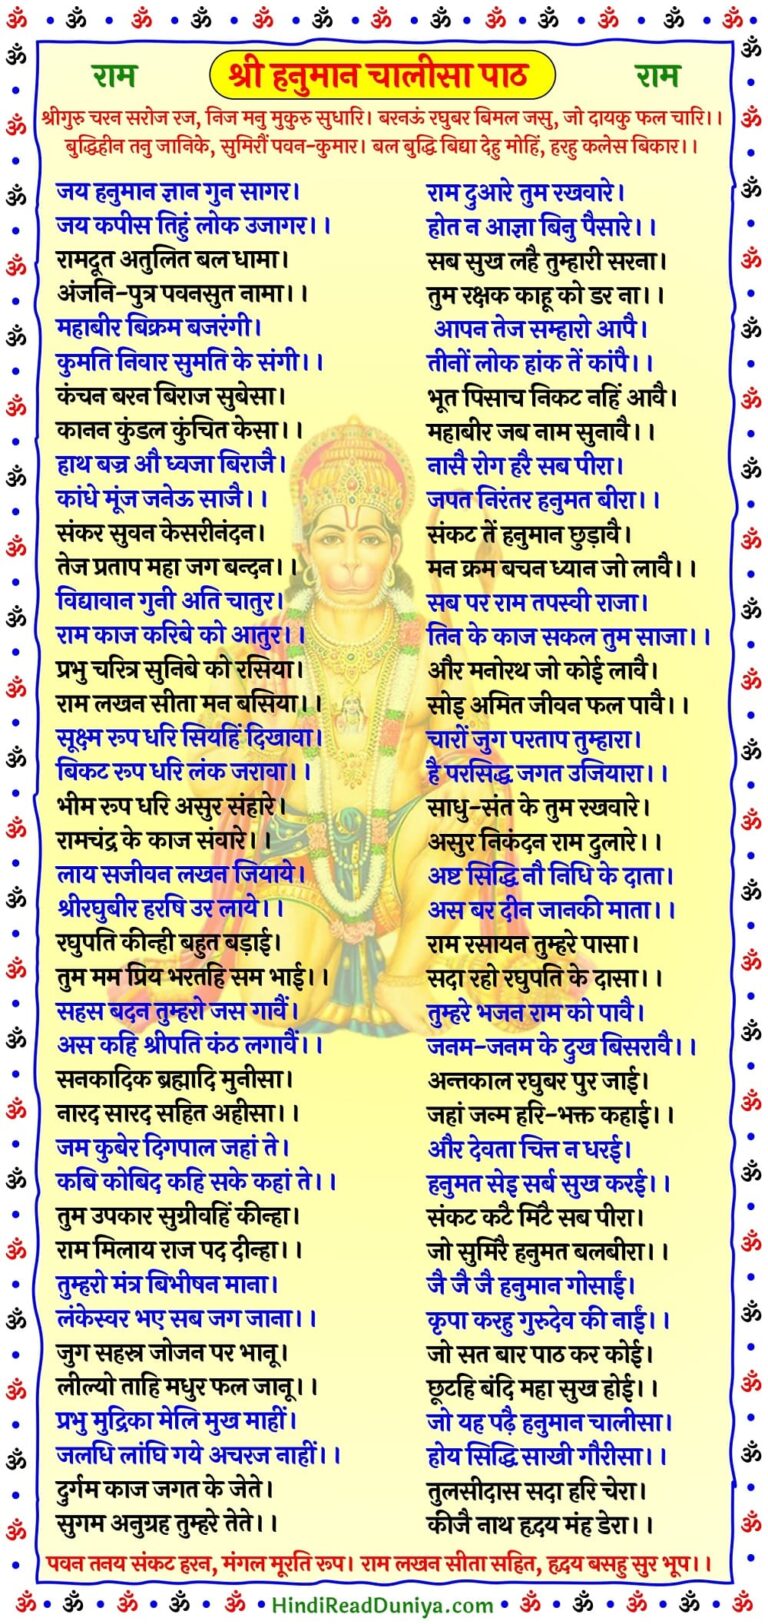 राम श्री हनुमान चालीसा पाठ राम
श्रीगुरु चरन सरोज रज, निज मनु मुकुरु सुधारि। बरनऊं रघुबर बिमल जसु, जो दायकु फल चारि।।
बुद्धिहीन तनु जानिके, सुमिरौं पवन-कुमार। बल बुद्धि बिद्या देहु मोहिं, हरहु कलेस बिकार।।
जय हनुमान ज्ञान गुन सागर।
जय कपीस तिहुं लोक उजागर।।
रामदूत अतुलित बल धामा।
अंजनि-पुत्र पवनसुत नामा।।
महाबीर बिक्रम बजरंगी।
कुमति निवार सुमति के संगी।।
कंचन बरन बिराज सुबेसा।
कानन कुंडल कुंचित केसा।।
हाथ बज्र औ ध्वजा बिराजै।
कांधे मूंज जनेऊ साजै।।
संकर सुवन केसरीनंदन।
तेज प्रताप महा जग बन्दन।।
विद्यावान गुनी अति चातुर।
राम काज करिबे को आतुर।।
प्रभु चरित्र सुनिबे को रसिया।
राम लखन सीता मन बसिया।।
सूक्ष्म रुप धरि सियहिं दिखावा।
बिकट रुप धरि लंक जरावा।।
भीम रुप धरि असुर संहारे।
रामचंद्र के काज संवारे।।
लाय सजीवन लखन जियाये।
श्रीरघुबीर हरषि उर लाये।।
रघुपति कीन्ही बहुत बड़ाई।
तुम मम प्रिय भरतहि सम भाई।।
सहस बदन तुम्हरो जस गावैं।
अस कहि श्रीपति कंठ लगावैं।।
सनकादिक ब्रह्मादि मुनीसा।
नारद सारद सहित अहीसा।।
जम कुबेर दिगपाल जहां ते।
कबि कोबिद कहि सके कहां ते।।
तुम उपकार सुग्रीवहिं कीन्हा।
राम मिलाय राज पद दीन्हा।।
तुम्हरो मंत्र बिभीषन माना।
लंकेस्वर भए सब जग जाना।।
जुग सहस्र जोजन पर भानू।
लील्यो ताहि मधुर फल जानू।।
प्रभु मुद्रिका मेलि मुख माहीं।
जलधि लांघि गये अचरज नाहीं।।
दुर्गम काज जगत के जेते।
सुगम अनुग्रह तुम्हरे तेते।।
राम दुआरे तुम रखवारे।
होत न आज्ञा बिनु पैसारे।।
सब सुख लहै तुम्हारी सरना।
तुम रक्षक काहू को डर ना।।
आपन तेज सम्हारो आपै।
तीनों लोक हांक तें कांपै।।
भूत पिसाच निकट नहिं आवै।
महाबीर जब नाम सुनावै।।
नासै रोग हरै सब पीरा।
जपत निरंतर हनुमत बीरा।।
संकट तें हनुमान छुड़ावै।
मन क्रम बचन ध्यान जो लावै।।
सब पर राम तपस्वी राजा।
तिन के काज सकल तुम साजा।।
और मनोरथ जो कोई लावै।
सोइ अमित जीवन फल पावै।।
चारों जुग परताप तुम्हारा।
है परसिद्ध जगत उजियारा।।
साधु-संत के तुम रखवारे।
असुर निकंदन राम दुलारे।।
अष्ट सिद्धि नौ निधि के दाता।
अस बर दीन जानकी माता।।
राम रसायन तुम्हरे पासा।
सदा रहो रघुपति के दासा।।
तुम्हरे भजन राम को पावै।
जनम-जनम के दुख बिसरावै।।
अन्तकाल रघुबर पुर जाई।
जहां जन्म हरि-भक्त कहाई।।
और देवता चित्त न धरई।
हनुमत सेइ सर्ब सुख करई।।
संकट कटै मिटै सब पीरा।
जो सुमिरै हनुमत बलबीरा।।
जै जै जै हनुमान गोसाईं।
कृपा करहु गुरुदेव की नाईं।।
जो सत बार पाठ कर कोई।
छूटहि बंदि महा सुख होई।।
जो यह पढ़ै हनुमान चालीसा।
होय सिद्धि साखी गौरीसा।।
तुलसीदास सदा हरि चेरा।
कीजै नाथ हृदय मंह डेरा।।
पवन तनय संकट हरन, मंगल मूरति रुप। राम लखन सीता सहित, हृदय बसहु सुर भूप।।
HindiReadDuniya.com